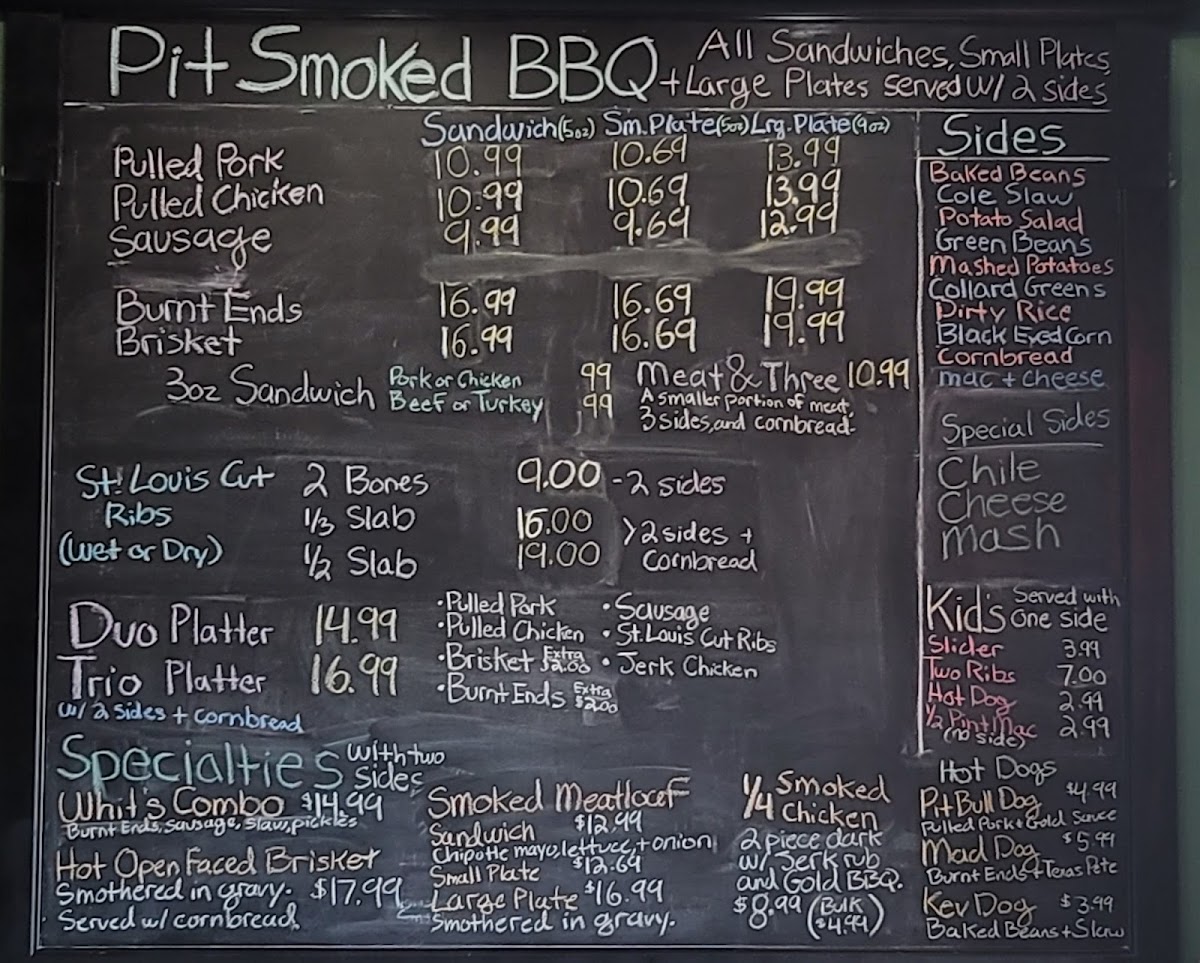 Pit Smoked BBQ
All Sandwiches, Small Plates,
+ Large Plates served w/ 2 sides
Sandwich (5oz) Sm. Plate (5oz) Lrg. Plate (9oz)
Pulled Pork 10.99 10.69 13.99
Pulled Chicken 10.99 10.69 13.99
Sausage 9.99 9.69 12.99
Burnt Ends 16.99 16.69 19.99
Brisket 16.99 16.69 19.99
3oz Sandwich
Pork or Chicken 99
Beef or Turkey 99
Meat & Three 10.99
A smaller portion of meat,
3 sides, and cornbread.
St. Louis Cut
Ribs
(Wet or Dry)
2 Bones 9.00 - 2 sides
1/3 Slab 16.00
1/2 Slab 19.00
> 2 sides +
Cornbread
Duo Platter 14.99
Trio Platter 16.99
w/ 2 sides + cornbread
• Pulled Pork
• Pulled Chicken
• Brisket Extra $2.00
• Burnt Ends Extra $2.00
• Sausage
• St. Louis Cut Ribs
• Jerk Chicken
Specialties with two
sides
Whit's Combo $14.99
Burnt Ends, sausage, slaw, pickles
Hot Open Faced Brisket
Smothered in gravy. $17.99
Served w/ cornbread.
Smoked Meatloef
Sandwich $12.99
Chipotle mayo, lettuce, + onion
Small Plate $12.69
Large Plate $16.99
Smothered in gravy.
1/4 Smoked
Chicken
2 piece dark
w/ Jerk rub
and Gold BBQ.
$8.99 (Bulk
$4.99)
Sides
Baked Beans
Cole Slaw
Potato Salad
Green Beans
Mashed Potatoes
Collard Greens
Dirty Rice
Black Eyed Corn
Cornbread
mac + cheese
Special Sides
Chile
Cheese
Mash
Kid's Served with
one side
Slider 3.99
Two Ribs 7.00
Hot Dog 2.99
1/2 Pint Mac 2.99
(no side)
Hot Dogs
Pit Bull Dog $4.99
Pulled Pork + Gold Sauce
Mad Dog $5.99
Burnt Ends + Texas Pete
Kev Dog $3.99
Baked Beans + Slaw